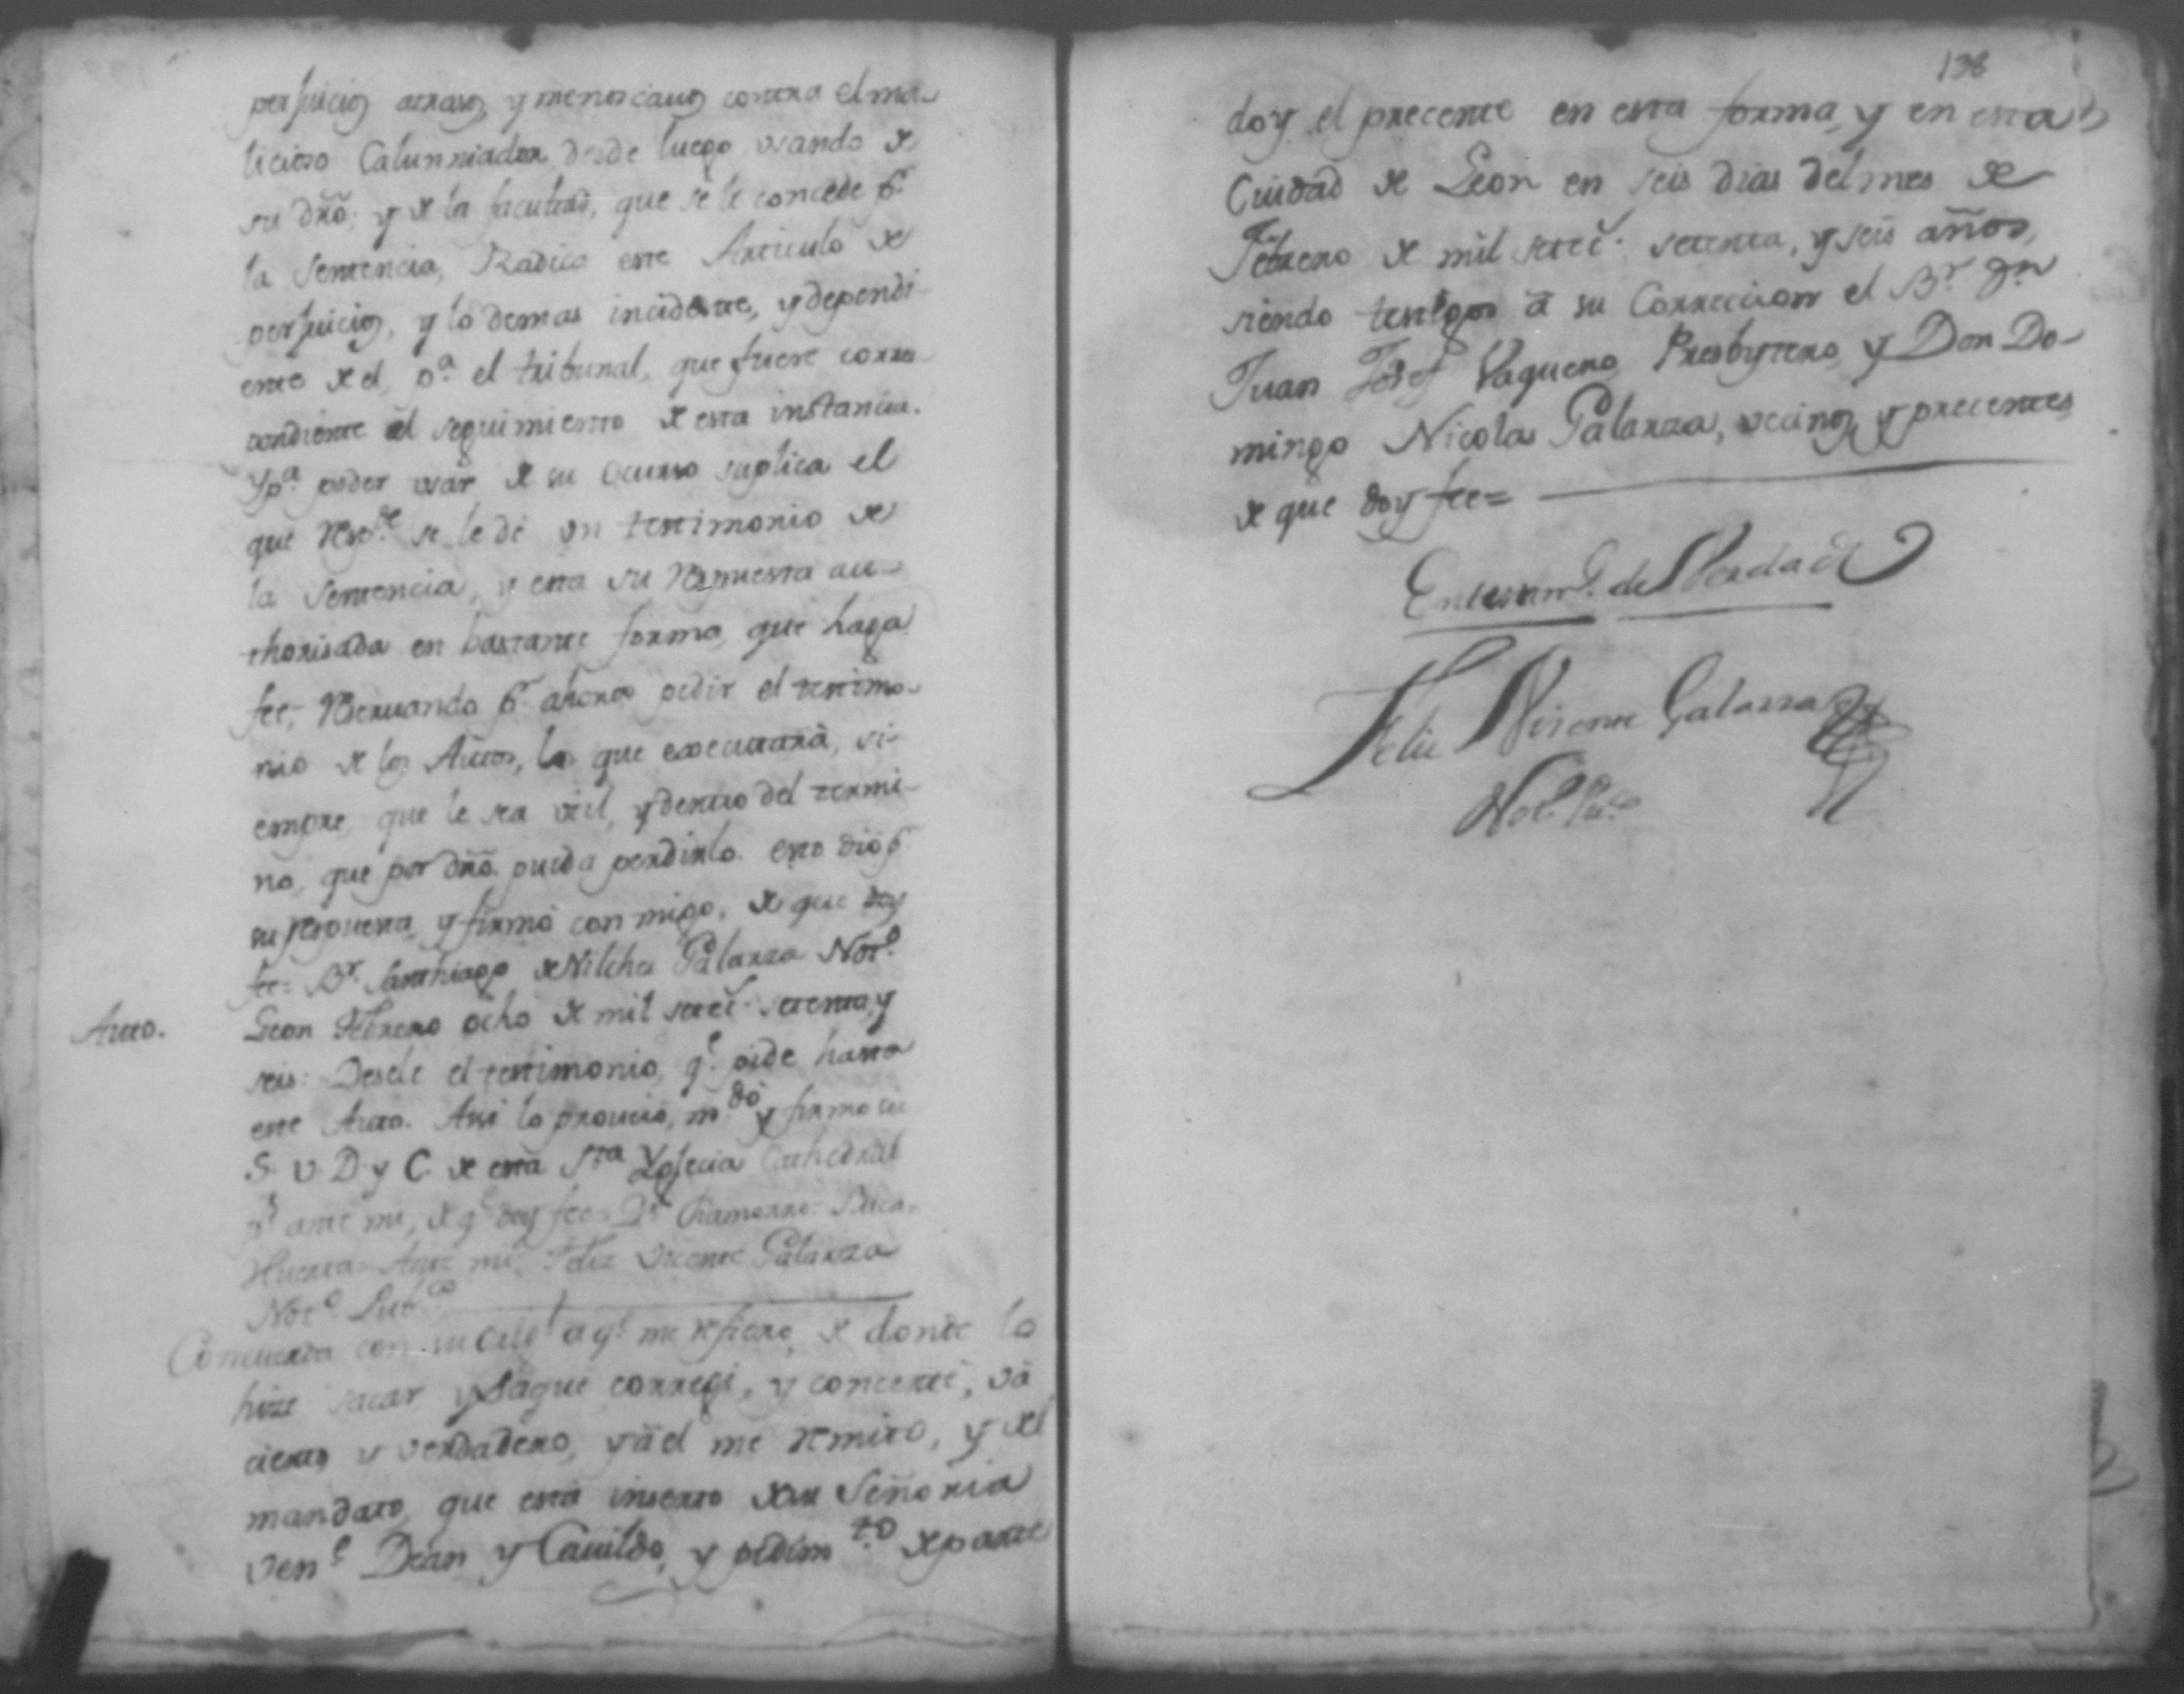 perjuicios atrasos, y menoscauos contra el ma-
licioso Calunniador desde luego usando de
su dr̃o. y de la facultad, que se le concede pr.
la Sentencia, Radica este Articulo de
perjuicios, y lo demas incidente, y dependi-
ente de el, pa. el tribunal, que fuere corres-
pondiente al seguimiento de esta instancia.
Y pa. poder usar de su ocurso suplica el
que respde. se le dé un testimonio de
la Sentencia, y esta su Respuesta au-
thorisada en bastante forma, que haga
fee; Reseruando pr. ahora pedir el testimo-
nio de los Autos, lo que executará, si-
empre que le sea util, y dentro del termi-
no, que por dr̃o. pueda pedirlo. esto dio pr.
su respuesta, y firmó con migo, de que doy
fee= Br. Santhiago de Vilches Galarza Noto.
Auto. Leon Febrero ocho de mil setects. setenta, y
seis: Desele el testimonio, qe. pide hasta
este Auto. Assi lo proueió, mdó. y firmó su
S. V. D y C. de esta Sta Yglecia Cathedral
pr. ante mi, de qe. doy fee= Dr. Chamorro=
Huerta= Ante mi, Feliz Vicente Galarza
Noto. Pubco.
Concuerda con su origl. a ql. me refiero, de donde lo
hize sacar, y saqué corregi, y concerté, vá
cierto y verdadero, y á él me remito, y del
mandato, que está inserto de su Señoria
Vene. Dean y Cauildo, y pedimto. de parte
138
doy el precente en esta forma, y en esta
Ciudad de Leon en seis dias del mes de
Febrero de mil setects. setenta, y seis años,
siendo testigos á su Correccion el Br. Dn
Juan Josef Vaquero Presbytero, y Don Do-
mingo Nicolas Galarza, vecinos, y precentes
de que doy fee=
En testimo. de Verdad
Feliz Visente Galarza
Noto. Puco.